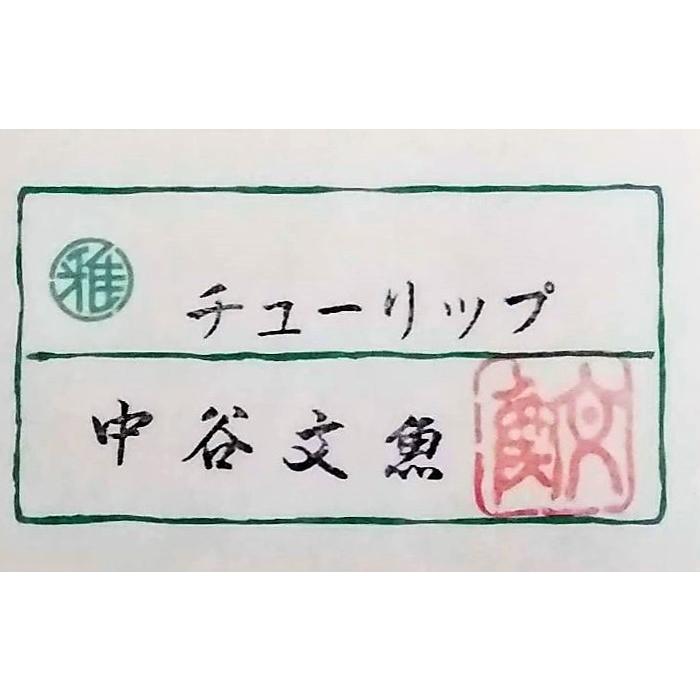 雅
チューリップ
中谷文魚
文魚